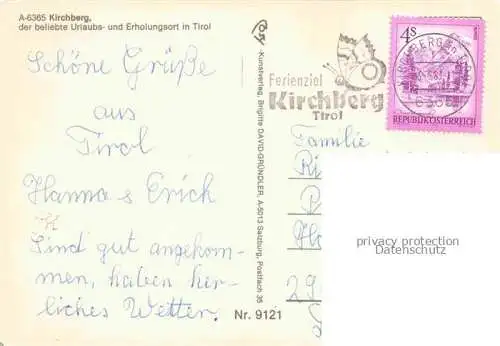 A-6365 Kirchberg,
der beliebte Urlaubs- und Erholungsort in Tirol
Schöne Grüße
aus
Tirol
Hanna & Erich
Sind gut angekom-
men, haben herr-
liches Wetter.
Kunstverlag, Brigitte DAVID-GRÜNDLER, A-5013 Salzburg, Postfach 35
Nr. 9121
Ferienziel
Kirchberg
Tirol
4S
REPUBLIK ÖSTERREICH
Familie
29
privacy protection
Datenschutz